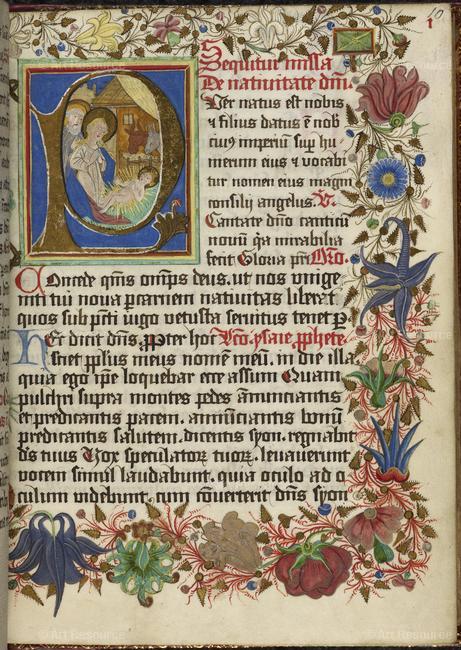 Sequitur missa
De nativitate dm̄.
Per natus est nobis
⁊ filius datus ē nob
cuiꝰ imperiū sup̄ hu
merum eius ⁊ vocabi
tur nomen eius magni
consilij angelus. V.
Cantate dn̄o canticū
novū q̄a mirabilia
fecit Gloria pr̄i Or̄o.
Concede qm̄s om̄ps deus. ut nos unige
niti tui nova p carnem nativitas liberet
quos sub pc̄ti iugo vetusta servitus tenet p
Hec dicit dn̄s ꝓpter hoc Lc̄o. ysaie ꝓphete
sciet pplus meus nomē meū. in die illa
quia ego ip̄e loquebar ecce assum Quam
pulchri supra montes pedes ānunciantis
et predicantis pacem. annūciantis bonū
predicantis salutem. dicentis syon. regnabit
ds̄ tuus Vox speculatorꝝ tuorꝝ. levaverunt
vocem simul laudabunt. quia oculo ad o
culum videbunt. cum cōverterit dn̄s syon
© Art Resource
© Art Resource